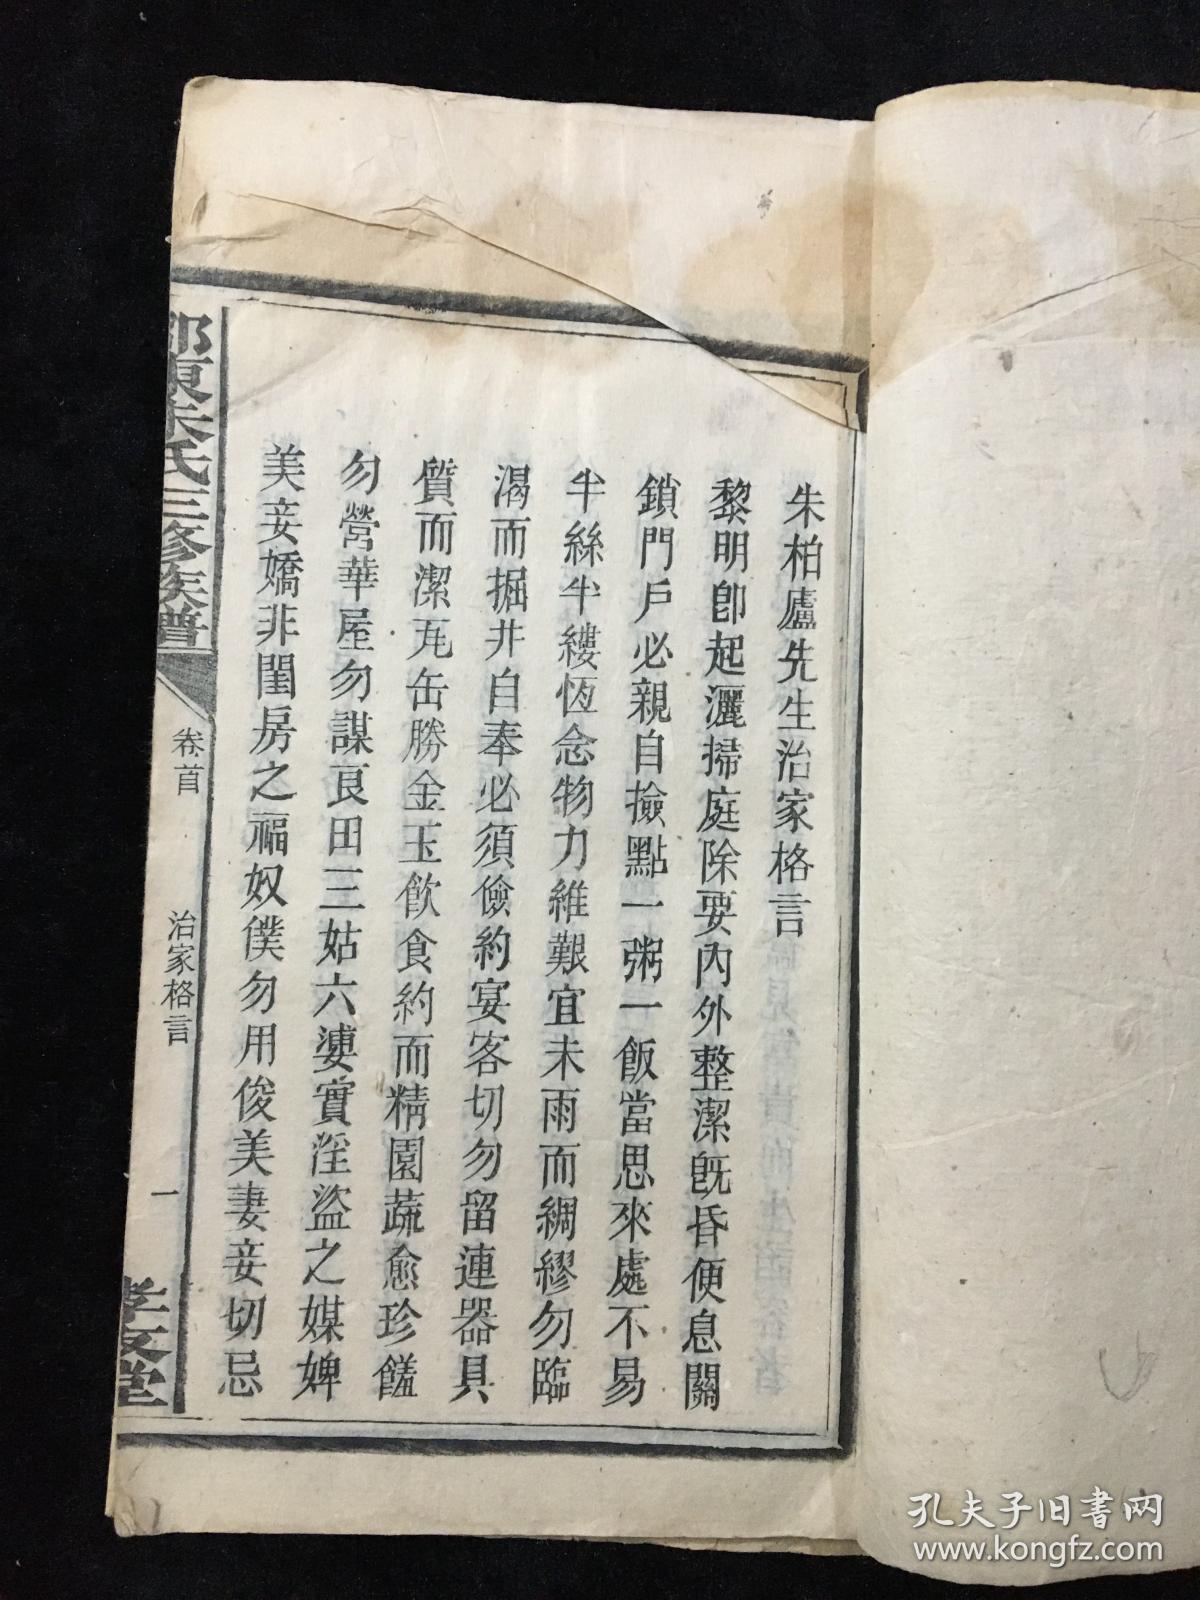 朱柏廬先生治家格言
黎明卽起灑掃庭除要內外整潔旣昏便息關
鎖門戶必親自撿點一粥一飯當思來處不易
半絲半縷恆念物力維艱宜未雨而綢繆勿臨
渴而掘井自奉必須儉約宴客切勿留連器具
質而潔瓦缶勝金玉飮食約而精園蔬愈珍饈
勿營華屋勿謀良田三姑六婆實淫盜之媒婢
美妾嬌非閨房之福奴僕勿用俊美妻妾切忌
東朱氏三修族譜
卷首
治家格言
一
孝友堂
孔夫子旧书网
www.kongfz.com